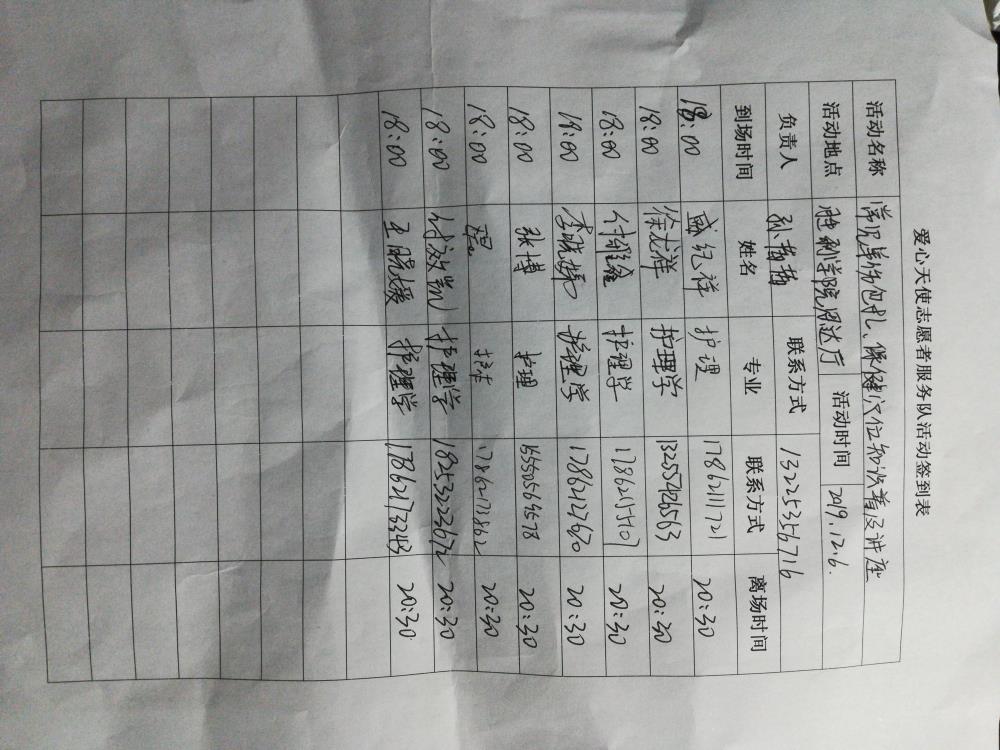 爱心天使志愿者服务队活动签到表
活动名称 常见急救包扎、保健穴位知识普及讲座
活动地点 胜利学院用达厅 活动时间 2019.12.6.
负责人 联系方式 13225356716
到场时间 姓名 专业 联系方式 离场时间
18:00 盛纪祥 护理 17862111721 20:30
18:00 徐龙祥 护理学 13255426563 20:30
18:00 护理学 17862155107 20:30
18:00 护理学 17862127620 20:30
18:00 张博 护理 15550569578 20:30
18:00 17862171862 20:30
18:00 付效凯 护理学 18253223672 20:30
18:00 王晓媛 护理学 17862173343 20:30